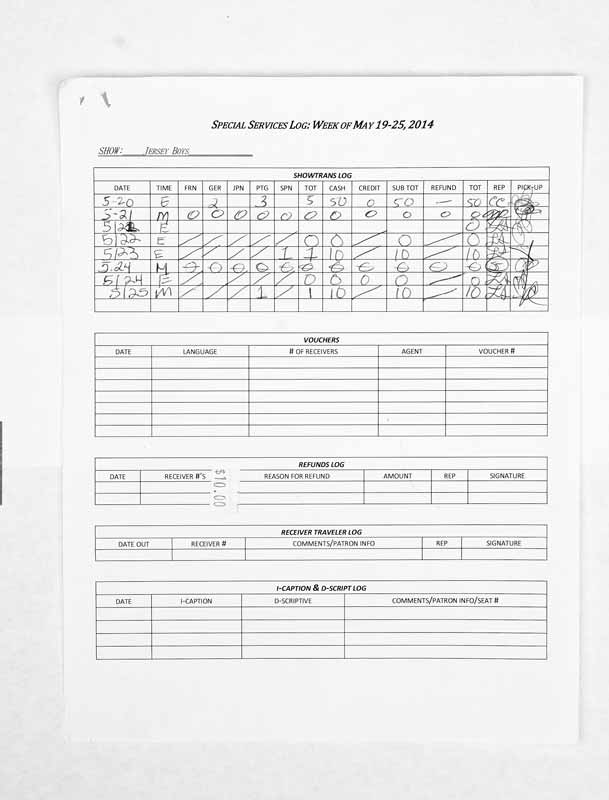 SPECIAL SERVICES LOG: WEEK OF MAY 19-25, 2014
SHOW: JERSEY BOYS
SHOWTRANS LOG
DATE TIME FRN GER JPN PTG SPN TOT CASH CREDIT SUB TOT REFUND TOT REP PICK-UP
5-20 E 2 3 5 50 0 50 — 50 CC
5-21 M 0 0 0 0 0 0 0 0 0 0 0
E 0 LS
5/22 E / / / / / 0 0 0 / 0 LS
5/23 E / / / / 1 1 10 / 10 / 10 LS
5.24 M 0 0 0 0 0 0 0 0 0 0
5/24 E / / / / / 0 0 0 0 / 0 LS
5/25 M / / / 1 / 1 10 / 10 / 10 LS
VOUCHERS
DATE LANGUAGE # OF RECEIVERS AGENT VOUCHER #
REFUNDS LOG
DATE RECEIVER #'S REASON FOR REFUND AMOUNT REP SIGNATURE
$10.00
RECEIVER TRAVELER LOG
DATE OUT RECEIVER # COMMENTS/PATRON INFO REP SIGNATURE
I-CAPTION & D-SCRIPT LOG
DATE I-CAPTION D-SCRIPTIVE COMMENTS/PATRON INFO/SEAT #